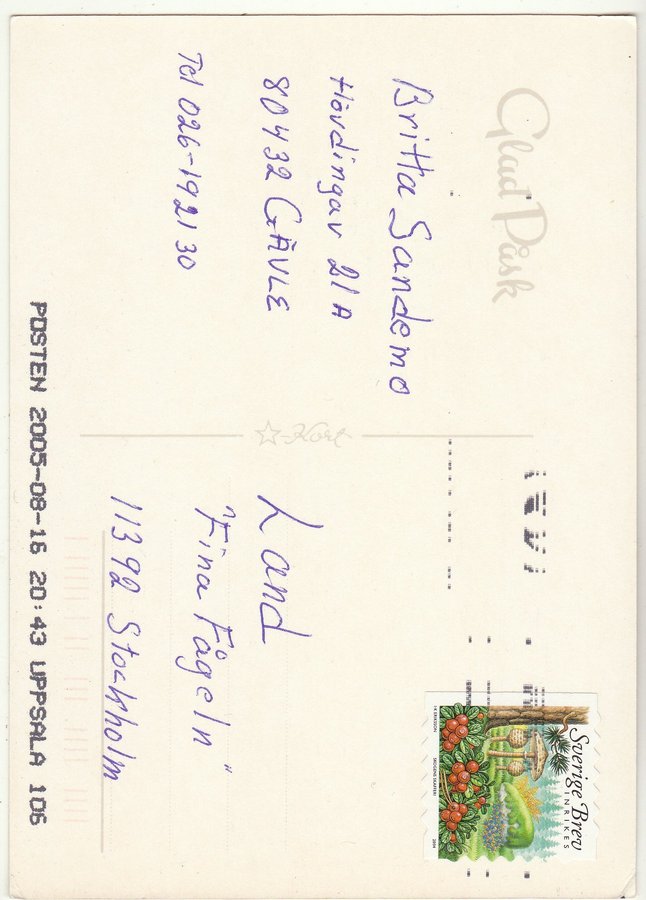 Glad Påsk
Britta Sandemo
Hövdingav 21A
80432 GÄVLE
Tel 026-192130
Kort
Land
"Fina Fågeln"
11392 Stockholm
Sverige Brev
INRIKES
2004
POSTEN 2005-08-16 20:43 UPPSALA 106